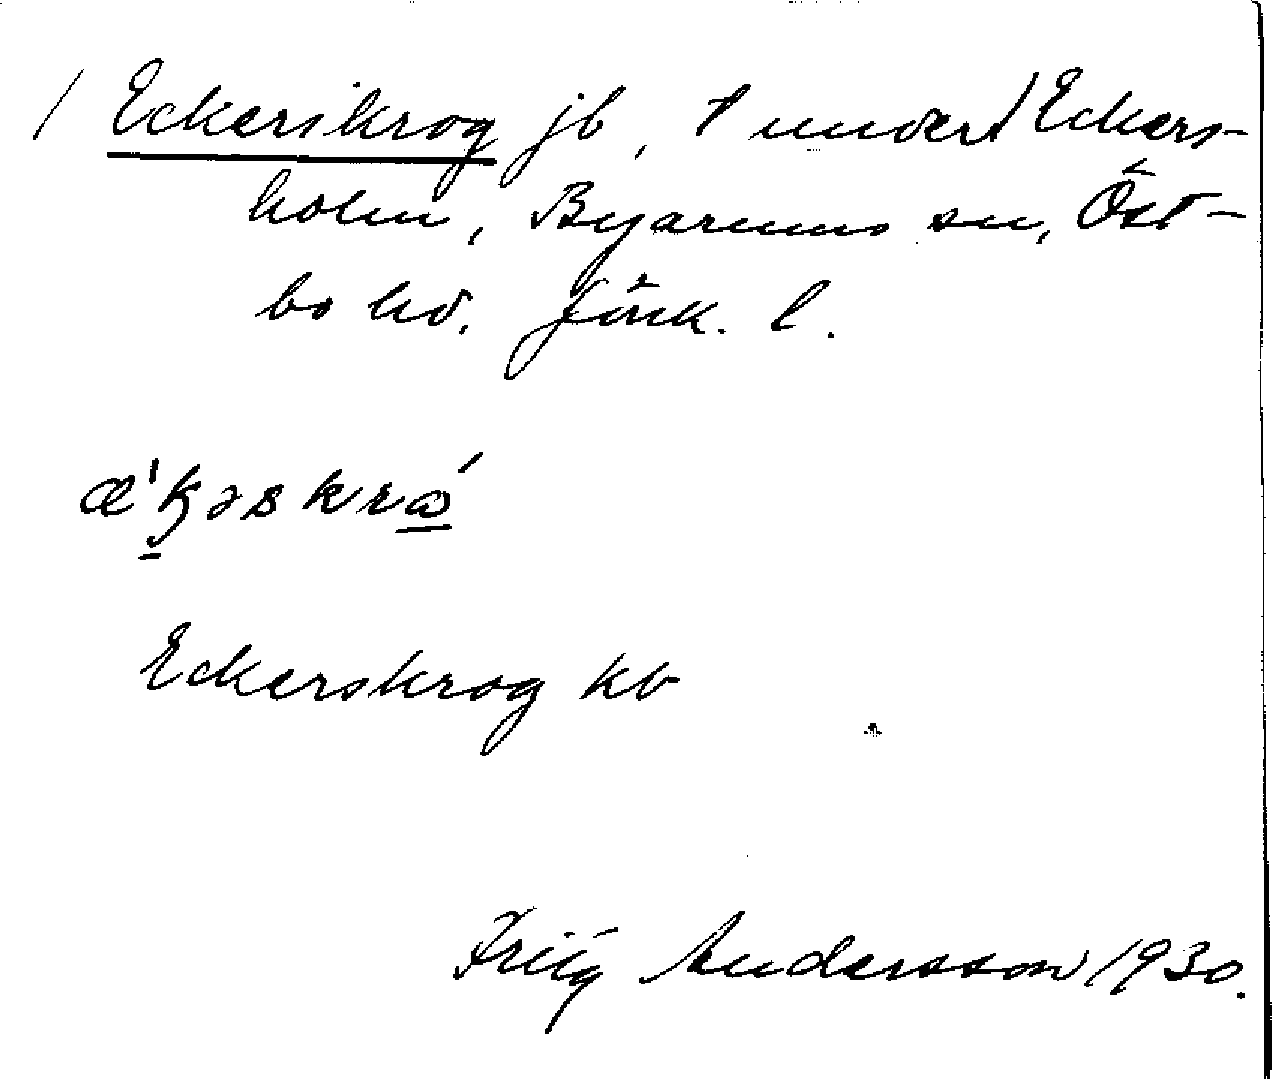 / Eckerskrog jb, 1 under) Eckers-
holm, Byarums sn, Öst-
bo hd. Jönk. l.
æ'kəskrá
Eckerskrog kb
Fritz Andersson 1930.